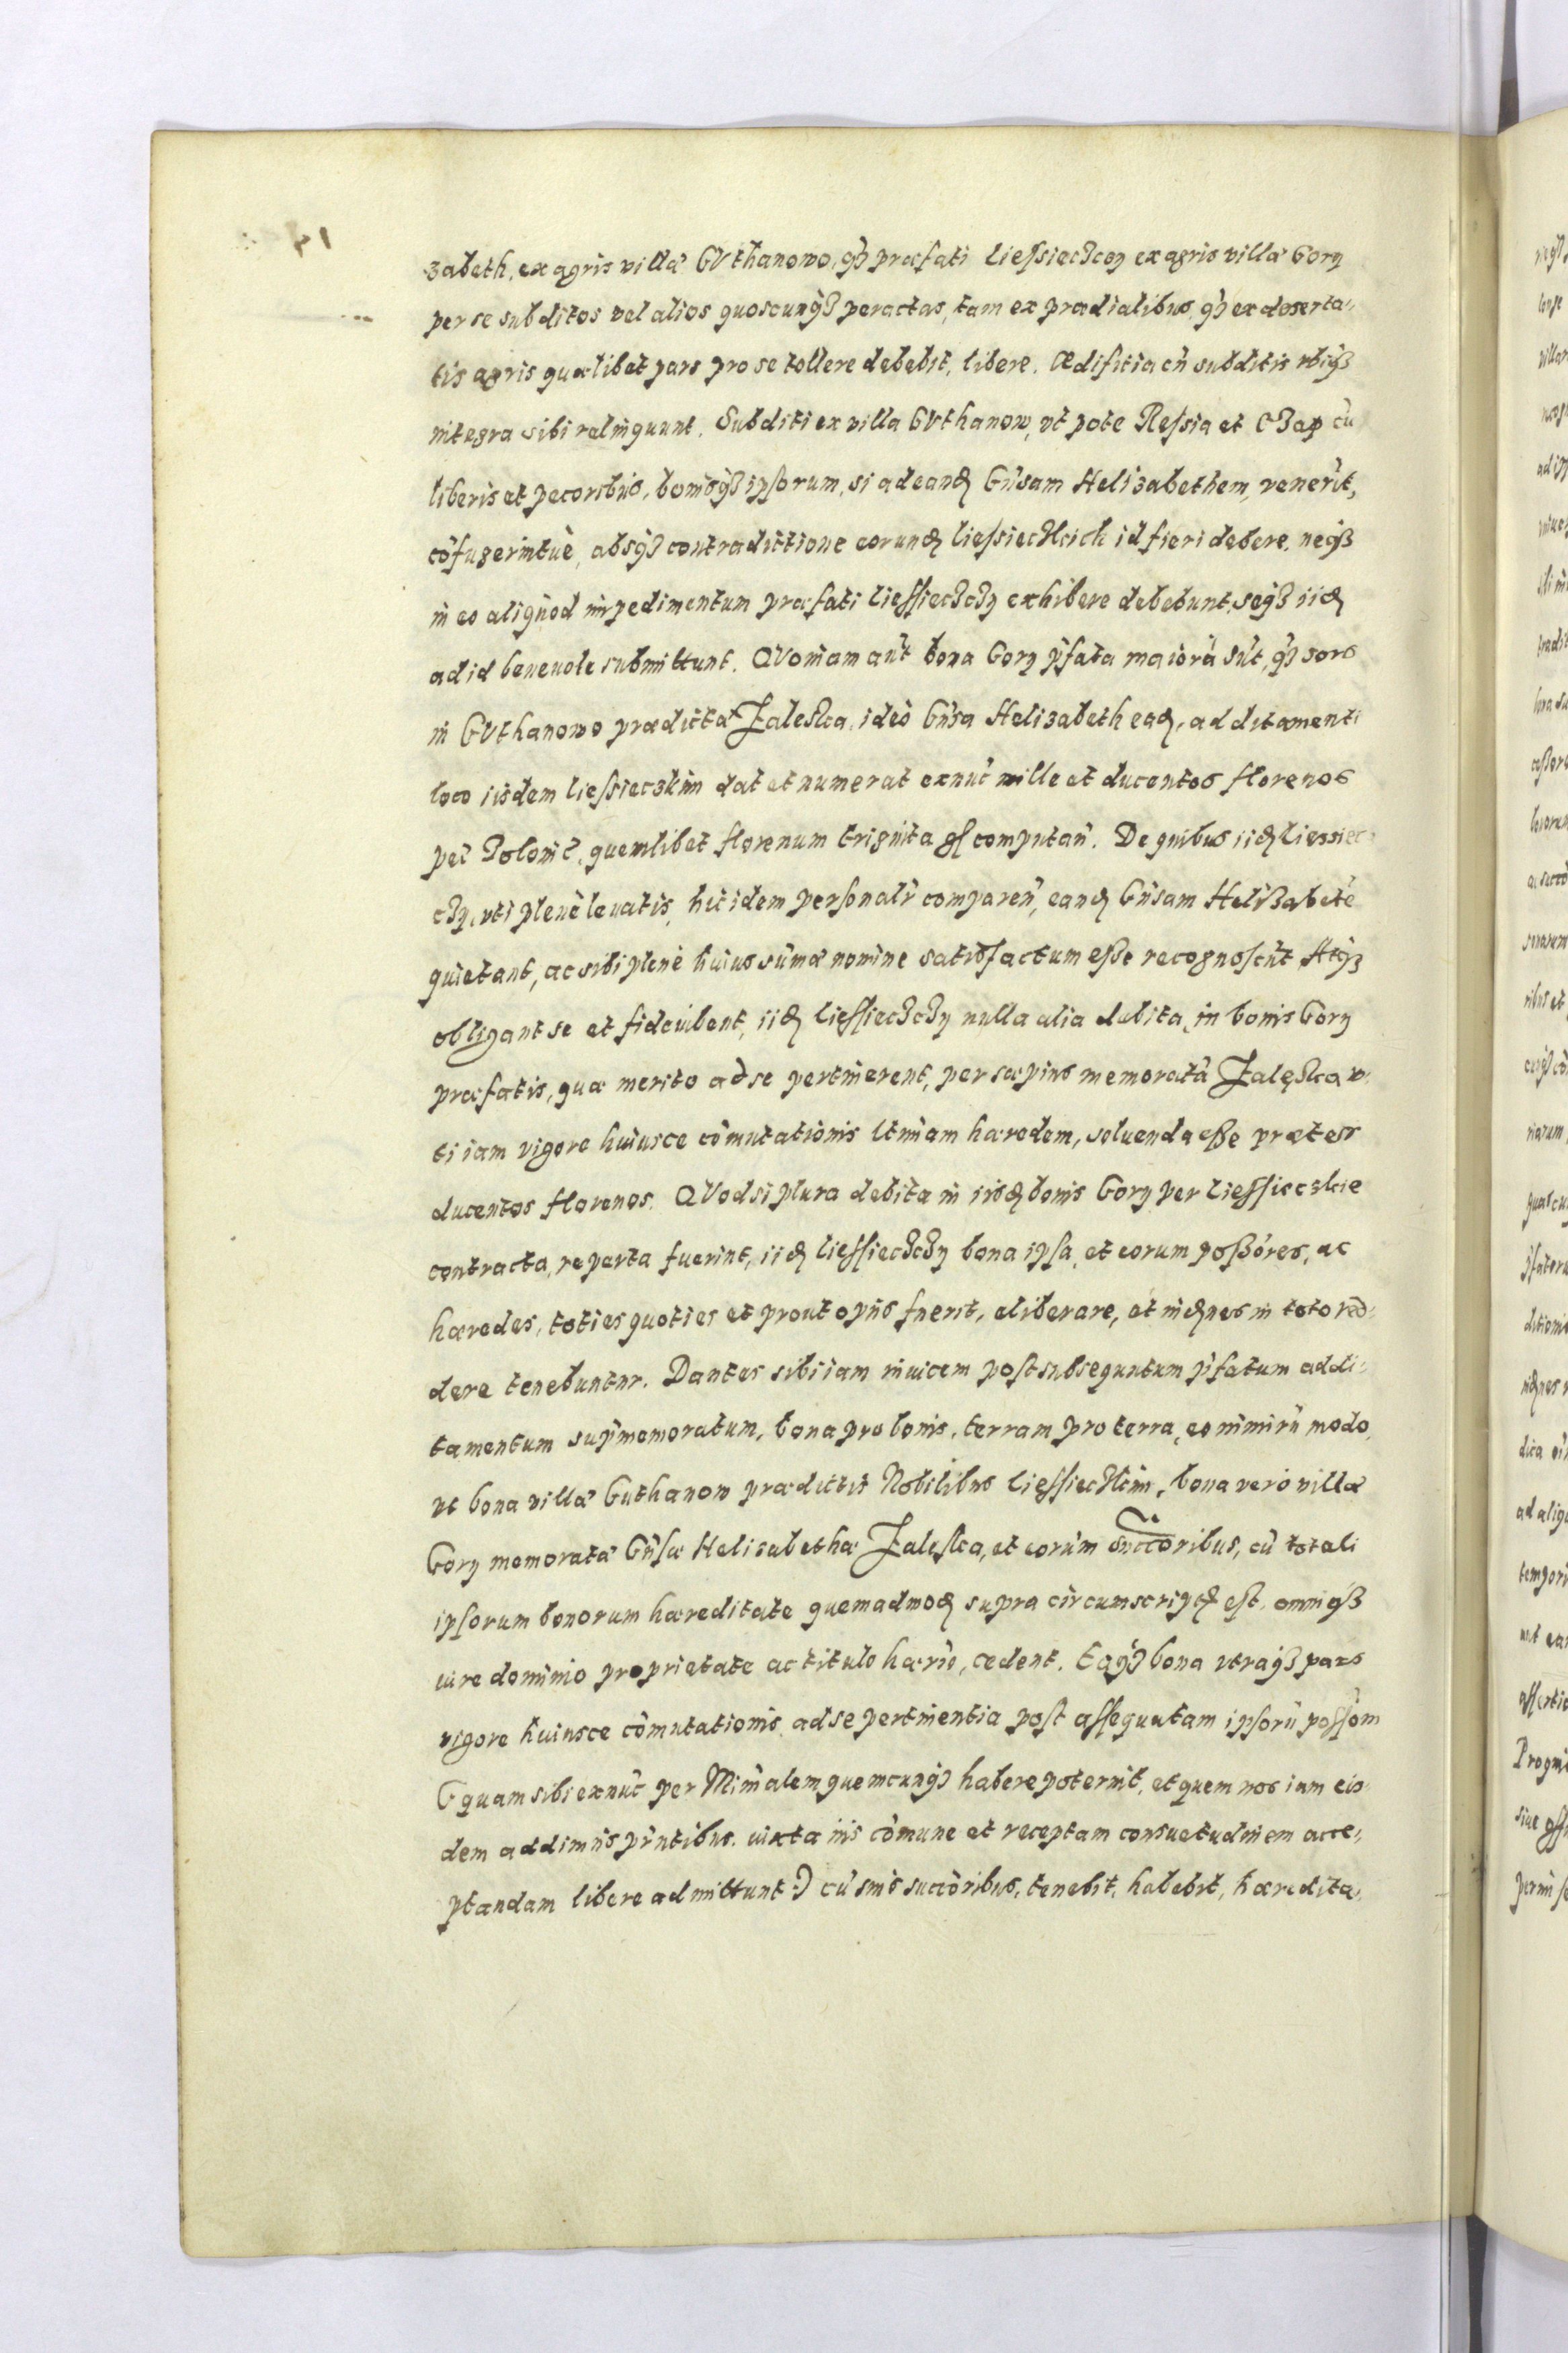 zabeth, ex agris villæ GVthanowo, qȝ præfati Liessieczczy ex agris villæ Gory
per se subditos vel alios quoscunqȝ peractas, tam ex prædialibus, qȝ ex deserta-
tis agris quælibet pars pro se tollere debebit, libere. Ædifitia cū subditis vbiqȝ
integra sibi relinquunt. Subditi ex villa GVthanow, vt pote Ressia et Czap cū
liberis et pecoribus, bonisqȝ ipsorum, si ad eandē Gn̄sam Helizabethem, venerīt,
cōfugerintuè, absqȝ contradictione eorundē Liessieczkich id fieri debere, neqȝ
in eo aliquod impedimentum præfati Liessieczczy exhibere debebunt, seqȝ iidē
ad id beneuole submittunt. QVoniam aūt bona Gory p̄fata maiora sūt, qȝ sors
in GVthanowo prædictæ Zaleska, ideò Gn̄sa Helizabeth eadē, additamenti
loco iisdem Liessieczkim dat et numerat exnūc mille et ducentos florenos
pec̄ Polonic̄, quemlibet florenum triginta gſ computan̄. De quibus iidē Liessiec-
czy, vti plenè leuatis, hic idem personalr̄ comparen̄, eandē Gn̄sam Helizabetē
quietant, ac sibi plenè huius sūmæ nomine satisfactum esse recognoscūt Atqȝ
obligant se et fideiubent, iidē Liessieczczy nulla alia debita, in bonis Gory
præfatis, quæ merito ad se pertinerent, per sæpius memoratā Zaleska v-
ti iam vigore huiusce cōmutationis ltimam hæredem, soluenda esse præter
ducentos florenos. QVod si plura debita in iisdē bonis Gory per Liessieczkie
contracta, reperta fuerint, iidē Liessieczczy bona ipsa, et eorum possōres, ac
hæredes, toties quoties et prout opus fuerit, eliberare, et indēnes in toto red-
dere tenebuntur. Dantes sibi iam inuicem post subsequutum p̄fatum addi-
tamentum sup̄memoratum, bona pro bonis, terram pro terra, eo nimirū modo,
vt bona villæ Guthanow prædictis Nobilibus Liessieczkim, bona verò villæ
Gory memoratæ Gn̄sæ Helizabethæ Zaleska, et eorum succoribus, cū totali
ipsorum bonorum hæreditate quemadmodē supra circumscriptē est, omniqȝ
iure dominio proprietate ac titulo hærio, cedent. Eaqȝ bona vtraqȝ pars
vigore huiusce cōmutationis ad se pertinentia post assequutam ipsorū possōm
(quam sibi exnūc per Min̄alem quemcunqȝ habere poterūt, et quem nos iam eis-
dem addimus pn̄tibus, iuxta ius cōmune et receptam consuetudinem acce-
ptandam libere admittunt:) cū suis succōribus, tenebit, habebit, hæredita-